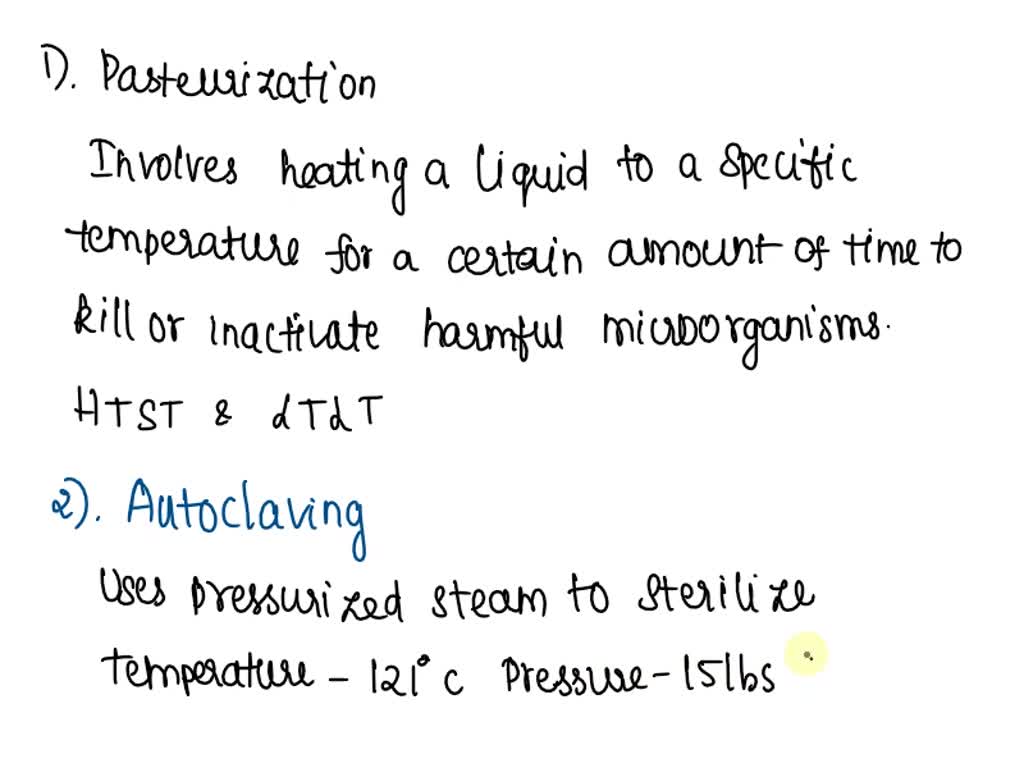 1). Pasteurization
Involves heating a liquid to a specific
temperature for a certain amount of time to
kill or inactivate harmful microorganisms.
HTST & LTLT
2). Autoclaving
Uses pressurized steam to sterilize
temperature - 121° c Pressure - 15lbs